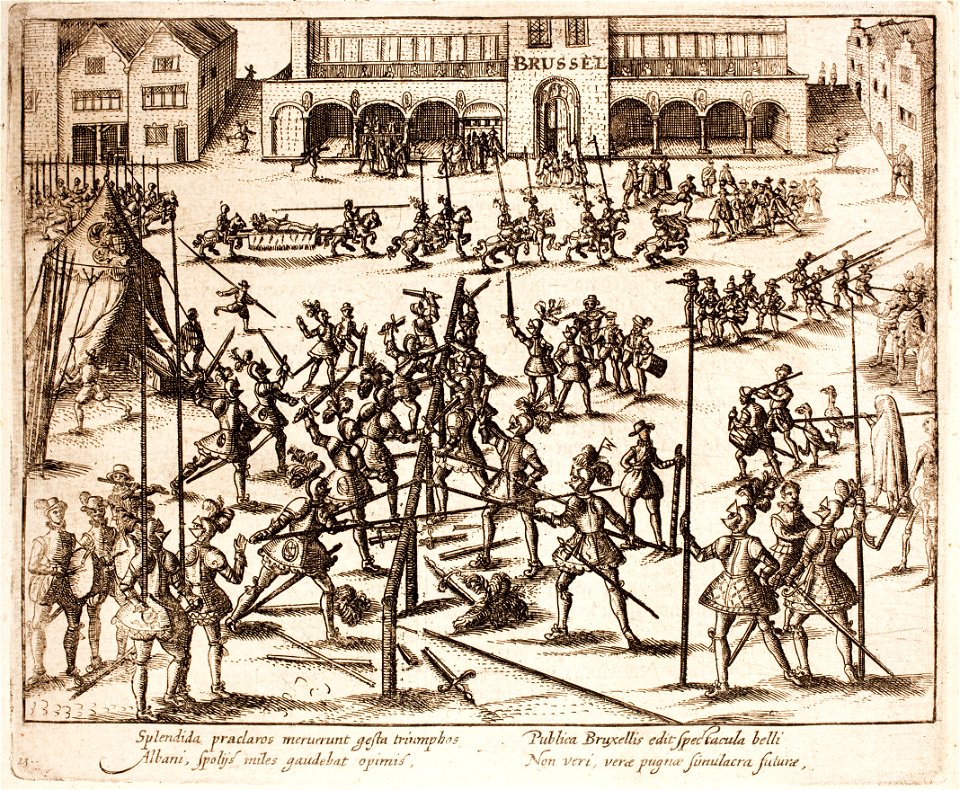 BRUSSEL
Splendida praclaros meruerunt gesta triumphos
Albani, spolijs miles gaudebat opimis,
Publica Bruxellis edit spectacula belli
Non veri, veræ pugnæ simulacra futuræ,
23